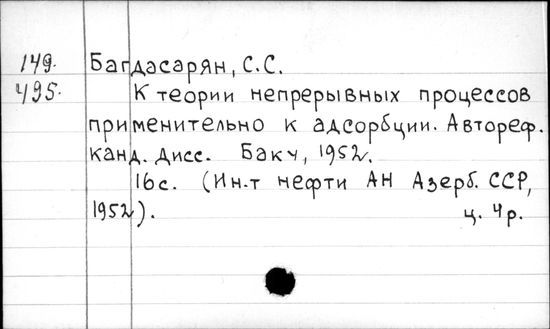 149. Багдасарян, С.С.
495. К теории непрерывных процессов
применительно к адсорбции. Автореф.
канд. дисс. Баку, 1952.
16с. (Ин-т нефти АН Азерб. ССР,
1952). ц. 4р.